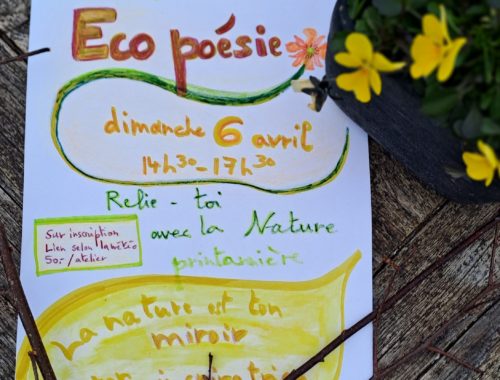 Eco poésie
dimanche 6 avril
14h30-17h30
Relie-toi
avec la Nature
printanière
Sur inscription
Lieu selon la météo
50.-/atelier
La nature est ton
miroir